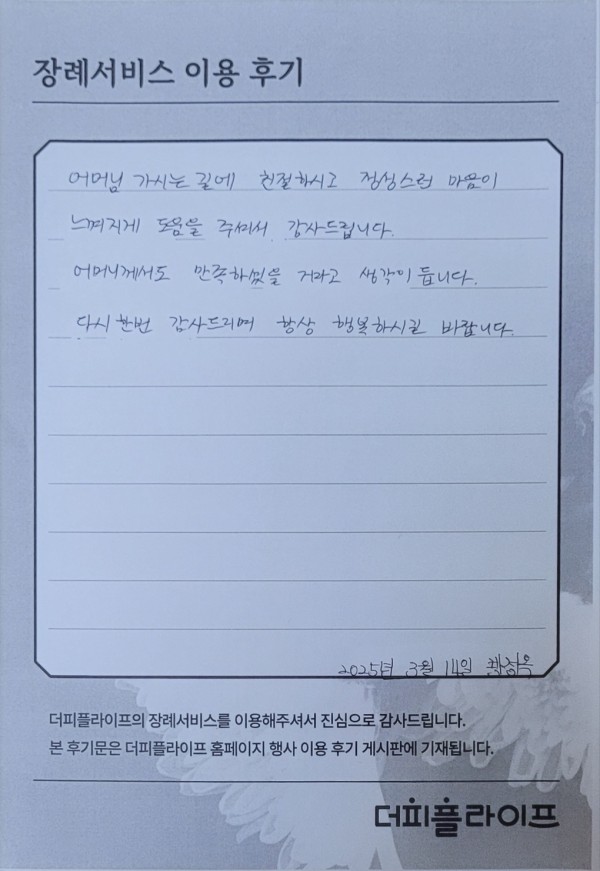 장례서비스 이용 후기
어머님 가시는 길에 친절하시고 정성스런 마음이
느껴지게 도움을 주셔서 감사드립니다.
어머니께서도 만족하셨을 거라고 생각이 듭니다.
다시 한번 감사드리며 항상 행복하시길 바랍니다.
2025년 3월 14일
더피플라이프의 장례서비스를 이용해주셔서 진심으로 감사드립니다.
본 후기문은 더피플라이프 홈페이지 행사 이용 후기 게시판에 기재됩니다.
더피플라이프